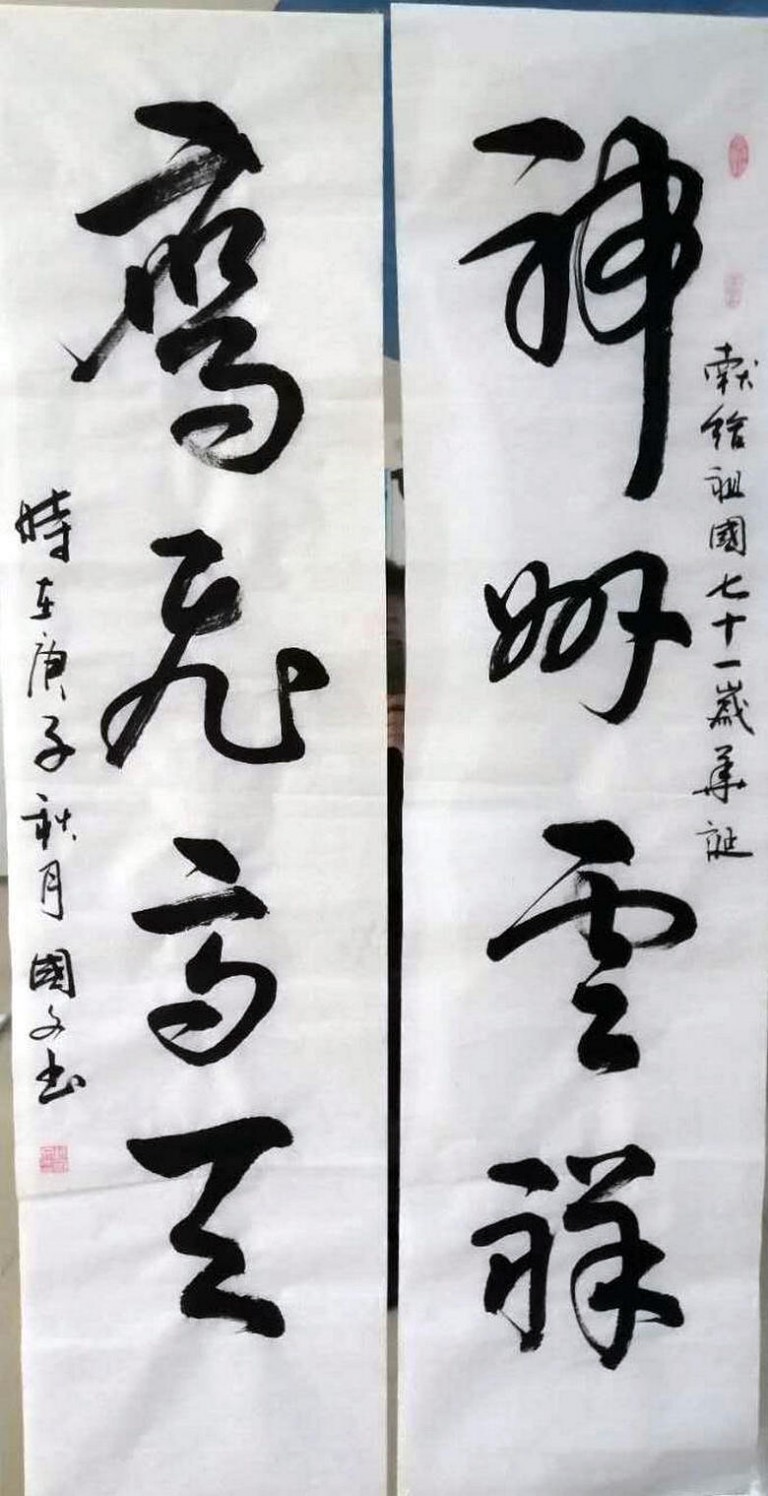 献给祖國七十一歲華誕
神州雲祥
鷹飛高天
時在庚子秋月國文书